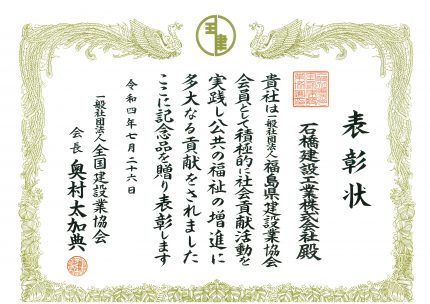 表彰状
石橋建設工業株式会社殿
貴社は一般社団法人福島県建設業協会
会員として積極的に社会貢献活動を
実践し公共の福祉の増進に
多大なる貢献をされました
ここに記念品を贈り表彰します
令和四年七月二十六日
一般社団法人全国建設業協会
会長奥村太加典